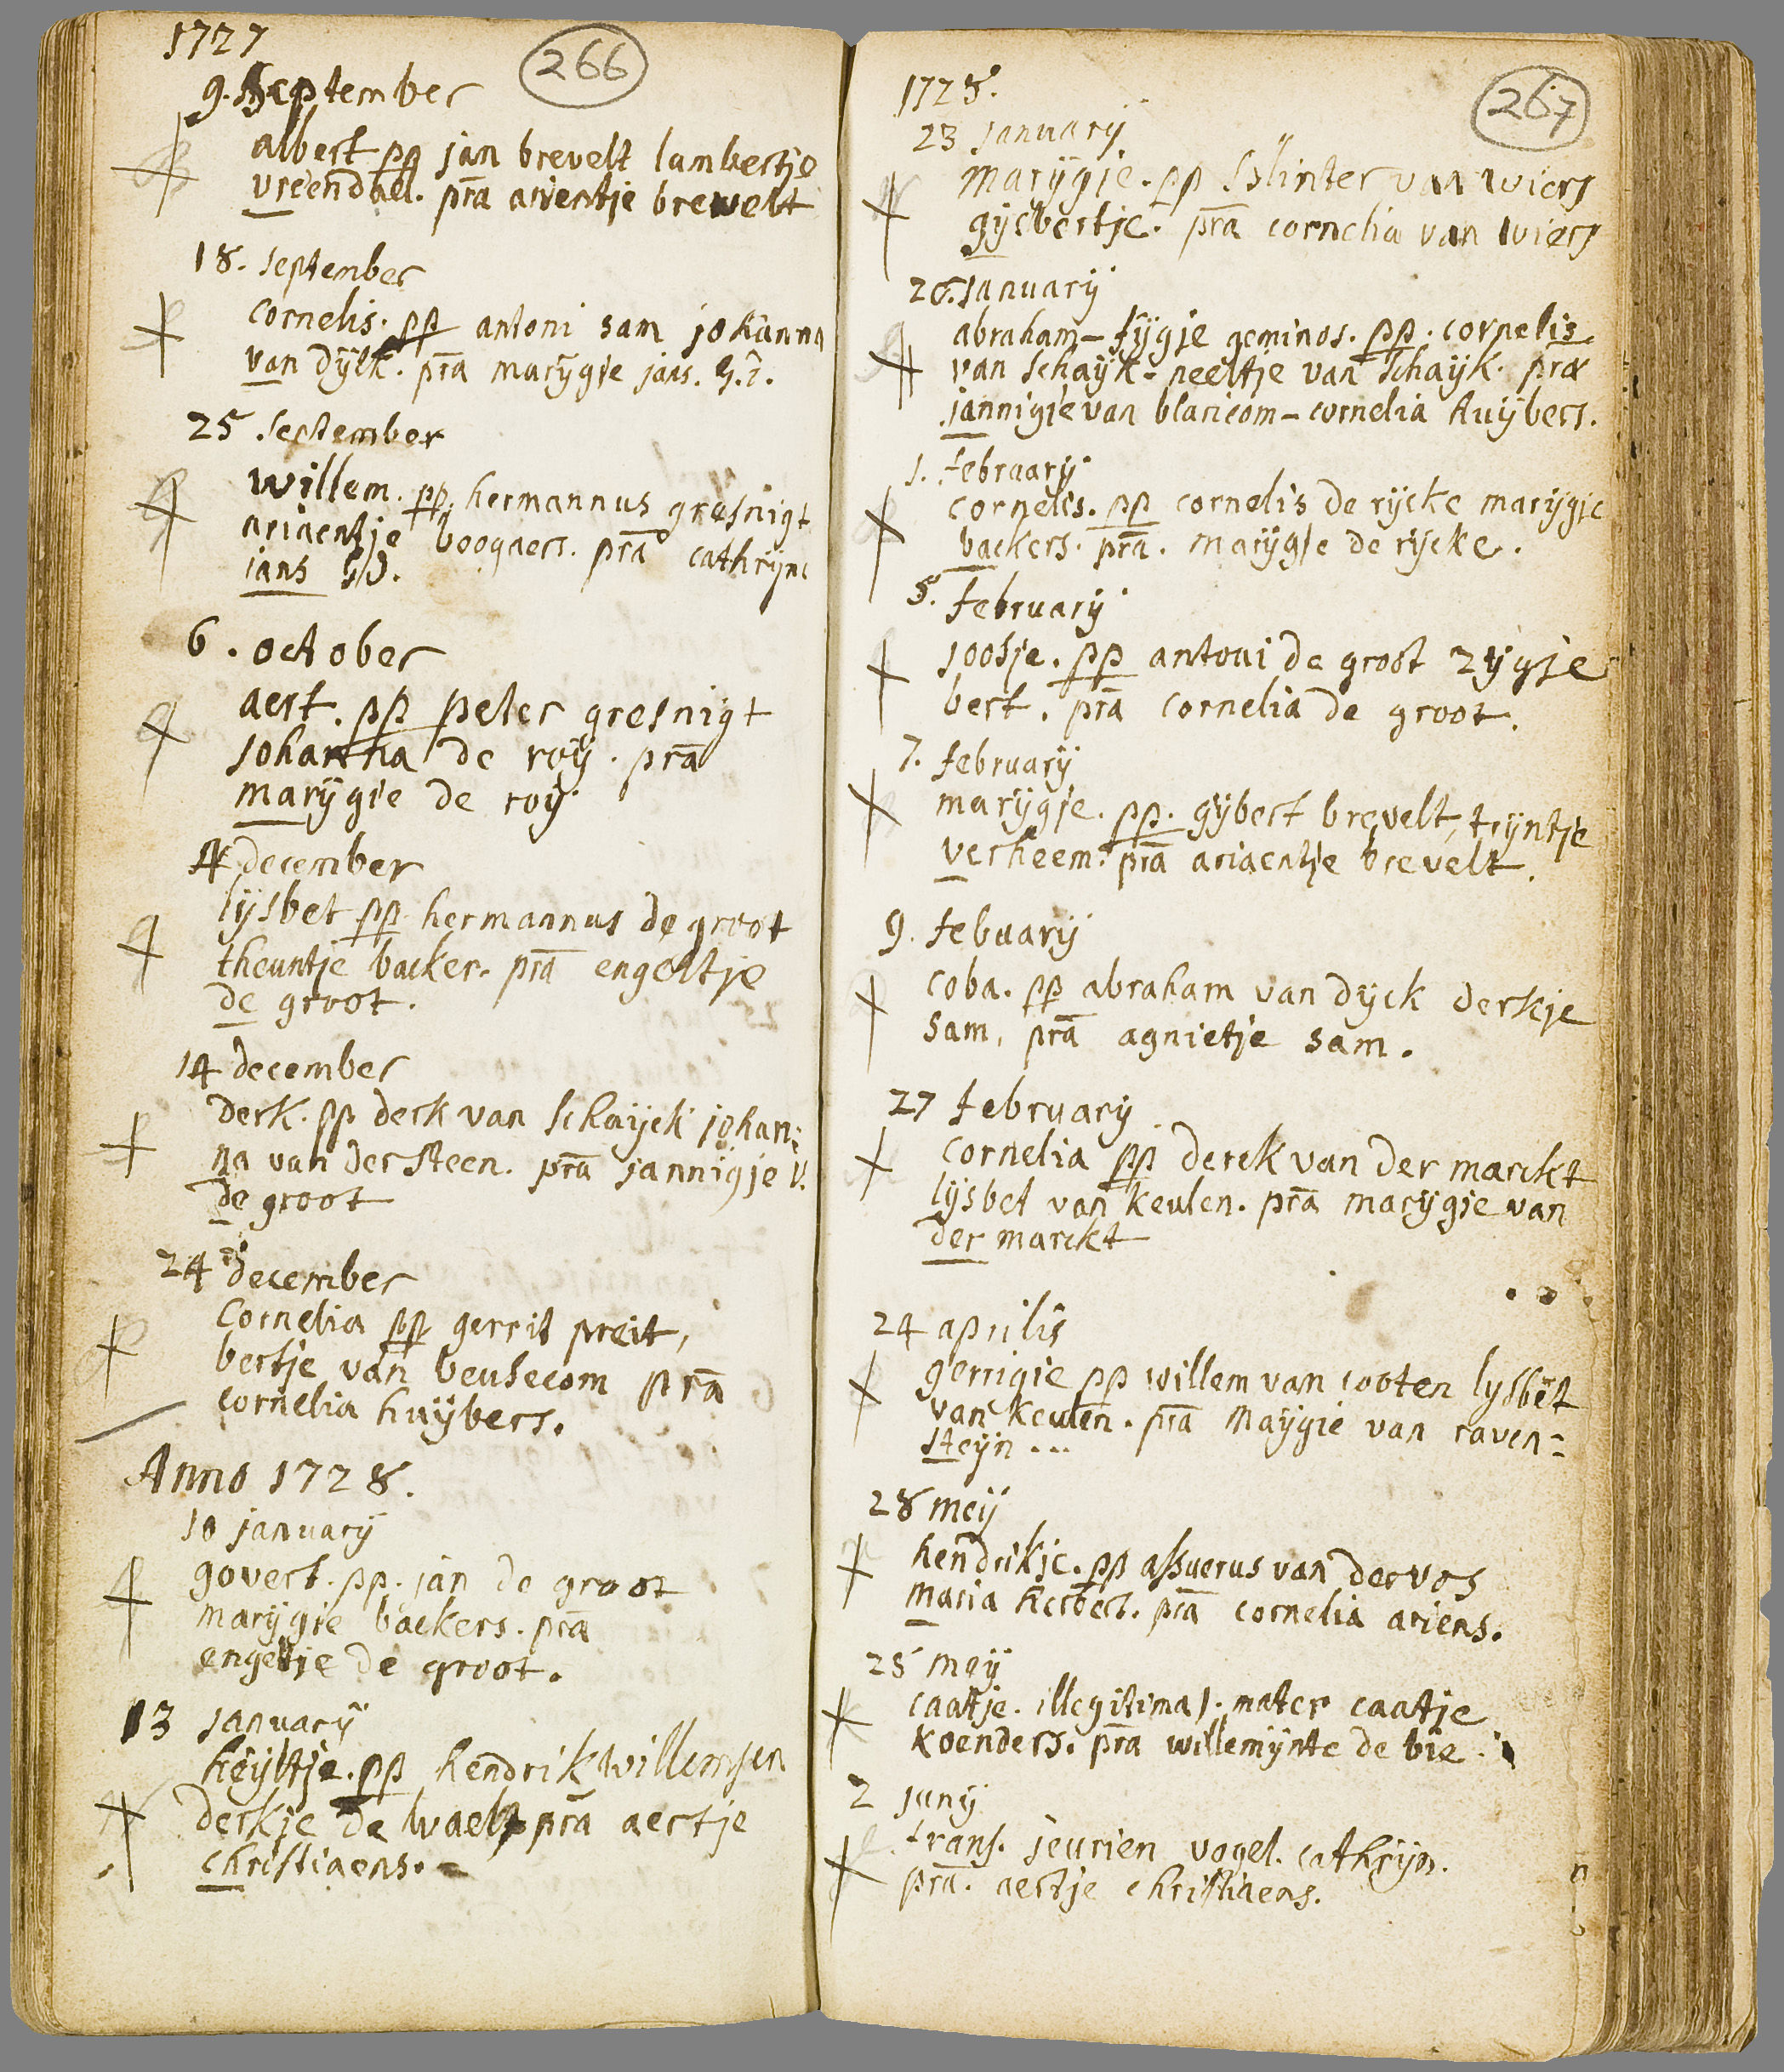 1727
266
9. September
albert pp jan brevelt lambertje
vreendael. prā arientje brevelt
18. september
cornelis. pp antoni sam johanna
van dijck. prā marijgie jans.
25 september
willem. pp. hermannus gresnigt
ariaentje boogaers. prā cathrijn
jans
6. october
aert. pp peter gresnigt
johanna de roij. prā
marijgie de roij
4 december
lijsbet pp hermannus de groot
theuntje backer. prā engeltje
de groot.
14 december
derk. pp derk van schaijck johan:
na van der steen. prā jannigje v.
de groot
24 december
Cornelia pp gerrit preit,
bertje van beusecom prā
cornelia huijbers.
Anno 1728.
10 januarij
govert. pp. jan de groot
marijgie backers. prā
engeltje de groot.
13 januarij
heijltje. pp hendrik willemsen
derkje de wael prā aertje
christiaens.
1728.
267
23 januarij
marijgie. pp Splinter van wiers
gijsbertje. prā cornelia van wiers
26. januarij
abraham – fijgje geminos. pp. cornelis
van schaijk – neeltje van schaijk. præ
jannigie van blaricom – cornelia huijbers.
1. februarij
cornelis. pp cornelis de rijcke marijgie
backers. prā. marijgie de rijcke.
5. februarij
joosje. pp antoni de groot zijgje
bert. prā cornelia de groot.
7. februarij
marijgje. pp. gijbert brevelt, trijntje
verheem. prā ariaentje brevelt.
9. febuarij
coba. pp abraham van dijck derkje
sam, prā agnietje sam.
27 februarij
cornelia pp derck van der marckt
lijsbet van keulen. prā marijgie van
der marckt
24 aprilis
gerrigie pp willem van cooten lijsbet
van keulen. prā Maijgie van raven:
steijn ...
28 meij
hendrikje. pp assuerus van der vos
maria herbert. prā cornelia ariens.
25 meij
caatje. illegitima). mater caatje
koenders. prā willemijnte de bie.
2 junij
frans. jeurien vogel. cathrijn.
prā. aertje christiaens.